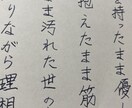 を持ったまま優
抱えたまま筋
ま汚れた世の
りながら理相